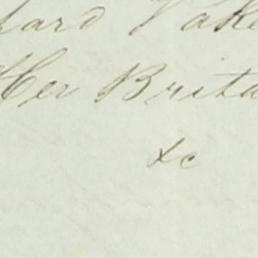 ard Pake
Her Brita
&c